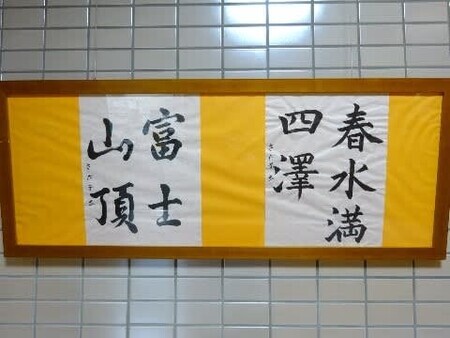 春水満
四澤
富士
山頂